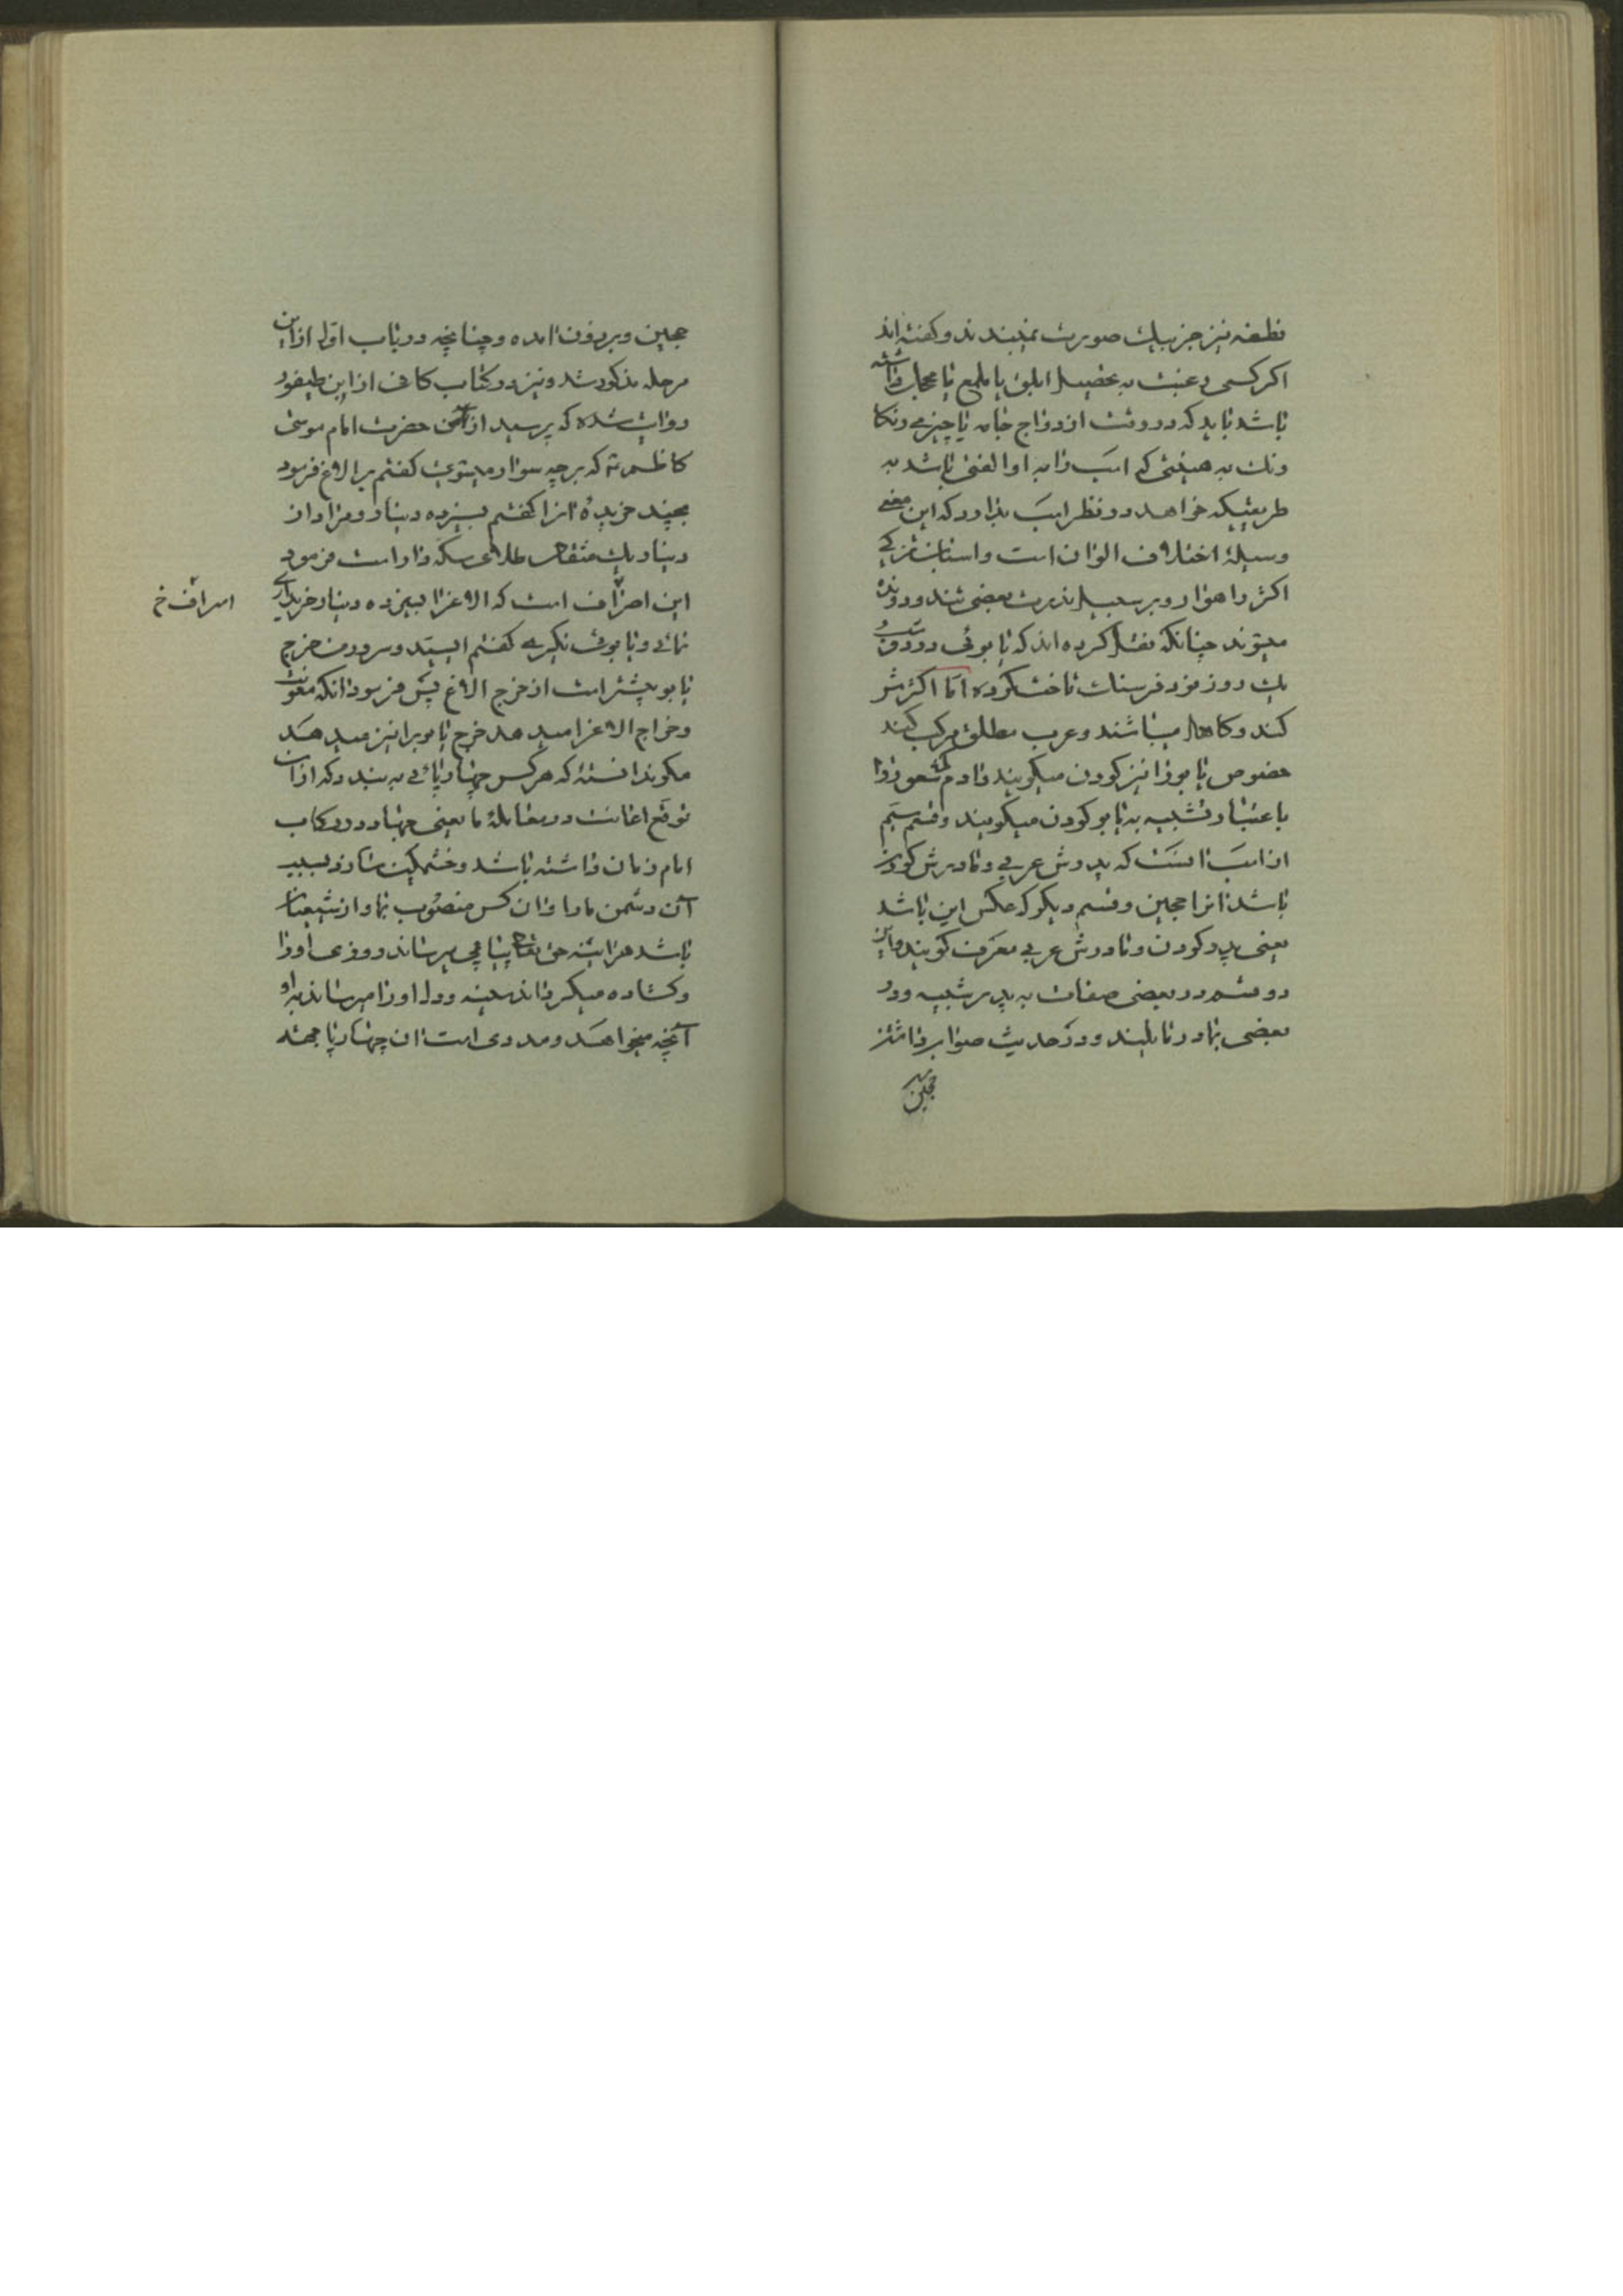 نطفه نیز جز بیك صورت نمیبندند و كفته اند
اكر كسی رغبت به تحصیل ابلق یا ملمع یا محجل داشته
باشد باید كه در وقت ازدواج جامه یا چیزی رنكا
رنك به هیئتی كه اسب را به او الفتی باشد به
طریقیكه خواهد در نظر اسب بدارد كه این معنی
وسیلهٔ اختلاف الوان است و اسبان تركی
اكثر راهوار و بر سبیل ندرت بعضی تند و دونده
میشوند چنانكه نقل كرده اند كه یابوئی در
یك روز نود فرسنك تاخت كرده اما اكثرش
كند و كاهل میباشند و عرب مطلق مركب كند
خصوص یابو را نیز كودن میكویند و ادم كم شعور را
باعتبار تشبیه به یابو كودن میكویند و قسم سیم
از اسب انست كه پدرش عربی و مادرش كودن
باشد انرا هجین و قسم دیكر كه عكس این باشد
یعنی پدر كودن و مادرش عربی مقرف كویند و این
دو قسم در بعضی صفات به پدر شبیه و در
بعضی بمادر مایلند و در حدیث ثواب داشتن
هجین
هجین و برذون امده و چنانچه در باب اول از این
مرحله مذكور شد و نیز در كتاب كافی از ابن طیفور
روایت شده كه پرسید از من حضرت امام موسی
كاظم ع كه بر چه سوار میشوی كفتم بر الاغ فرمود
بچند خریدهٔ انرا كفتم بسیزده دینار و مراد از
دینار یك مثقال طلای سكه دار است فرمود
این اصراف است كه الاغ را بسیزده دینار خریداری
نمائی و یابوئی نكیری كفتم ای سید و سرور من خرج
یابو بیشتر است از خرج الاغ پس فرمود انكه مؤنت
و خراج الاغ را میدهد خرج یابو را نیز میدهد
مكر ندانستهٔ كه هر كس چهارپائی به بندد كه از ان
توقع اعانت در مقابلهٔ ما یعنی جهاد در ركاب
امام زمان داشته باشد و خشمكین سازد بسبب
آن دشمن ما را و ان كس منصوب بما و از شیعیان
باشد هر اینه حق تعالی پیاپی میرساند روزی او را
و كشاده میكرداند سینه و دل او را و میرساند به او
آنچه میخواهد و مددی است ان چهارپا بجهة
اسراف خ